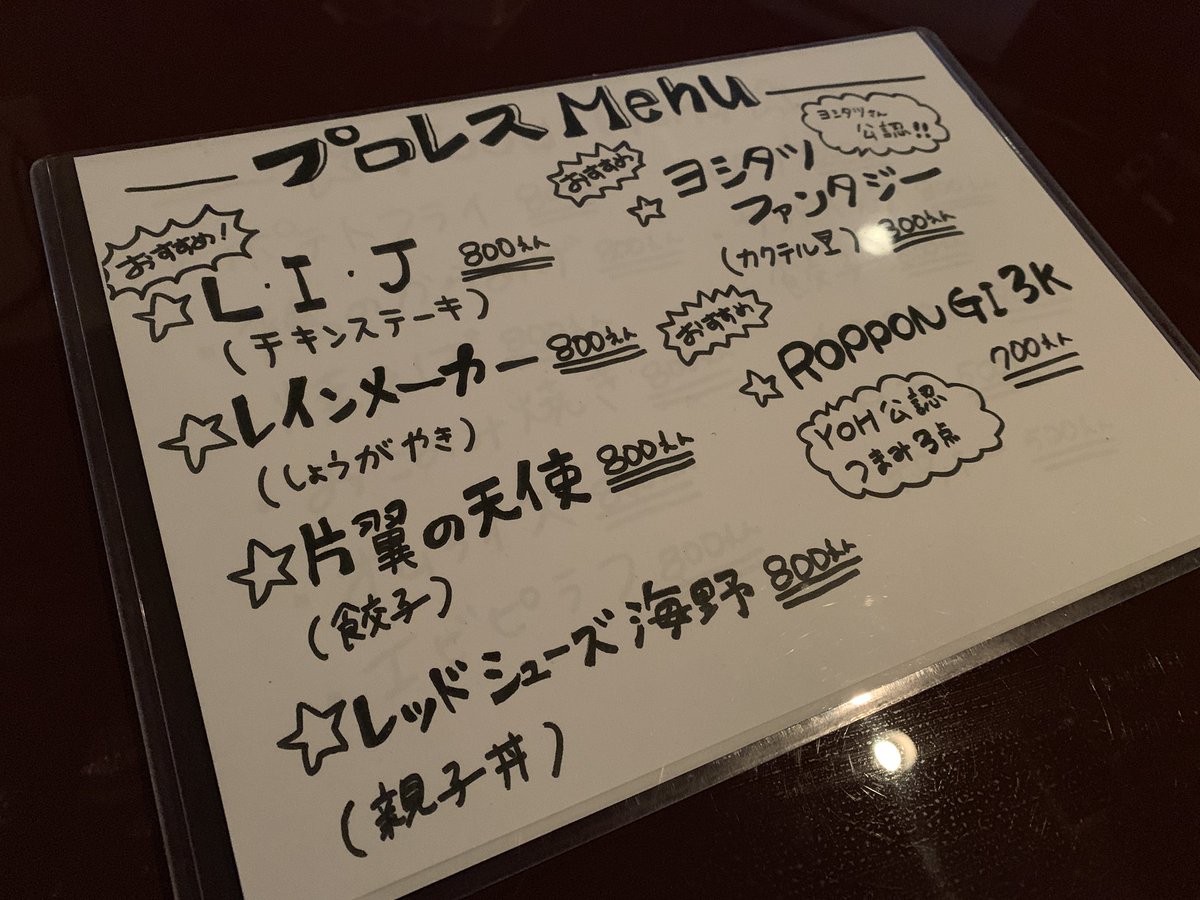 プロレスMenu
おすすめ!
☆L・I・J 800えん
(チキンステーキ)
☆レインメーカー 800えん
(しょうがやき)
☆片翼の天使 800えん
(餃子)
☆レッドシューズ海野 800えん
(親子丼)
ヨシタツさん
公認!!
おすすめ
☆ヨシタツ
ファンタジー
(カクテル 豆) 300えん
おすすめ
☆ROPPONGI 3K
700えん
YOH公認
つまみ3点